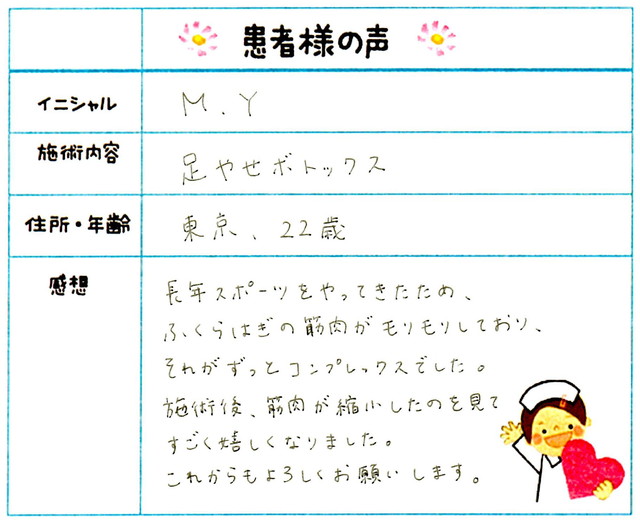 患者様の声
イニシャル M.Y
施術内容 足やせボトックス
住所・年齢 東京、22歳
感想
長年スポーツをやってきたため、
ふくらはぎの筋肉がモリモリしており、
それがずっとコンプレックスでした。
施術後、筋肉が縮小したのを見て
すごく嬉しくなりました。
これからもよろしくお願いします。